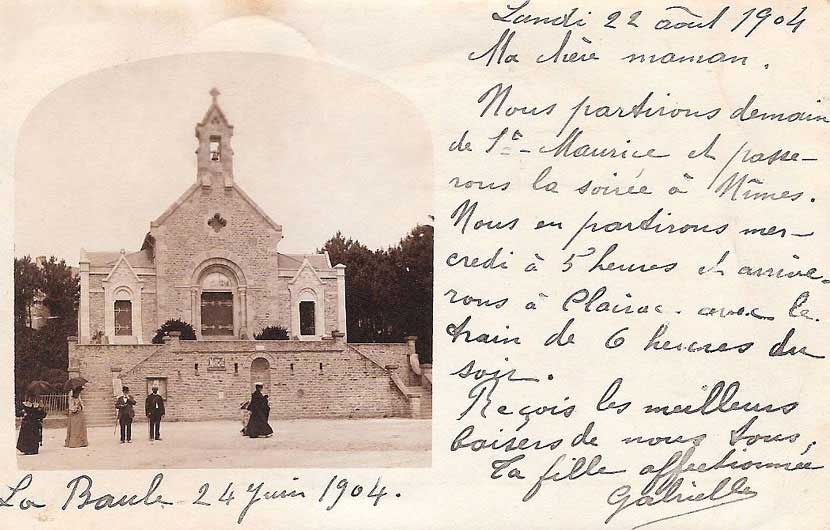 Lundi 22 août 1904
Ma chère maman.
Nous partirons demain
de St-Maurice et passe-
rons la soirée à Nîmes.
Nous en partirons mer-
credi à 5 heures et arrive-
rons à Clairac avec le
train de 6 heures du
soir.
Reçois les meilleurs
baisers de nous tous,
Ta fille affectionnée
Gabrielle
La Baule 24 Juin 1904.